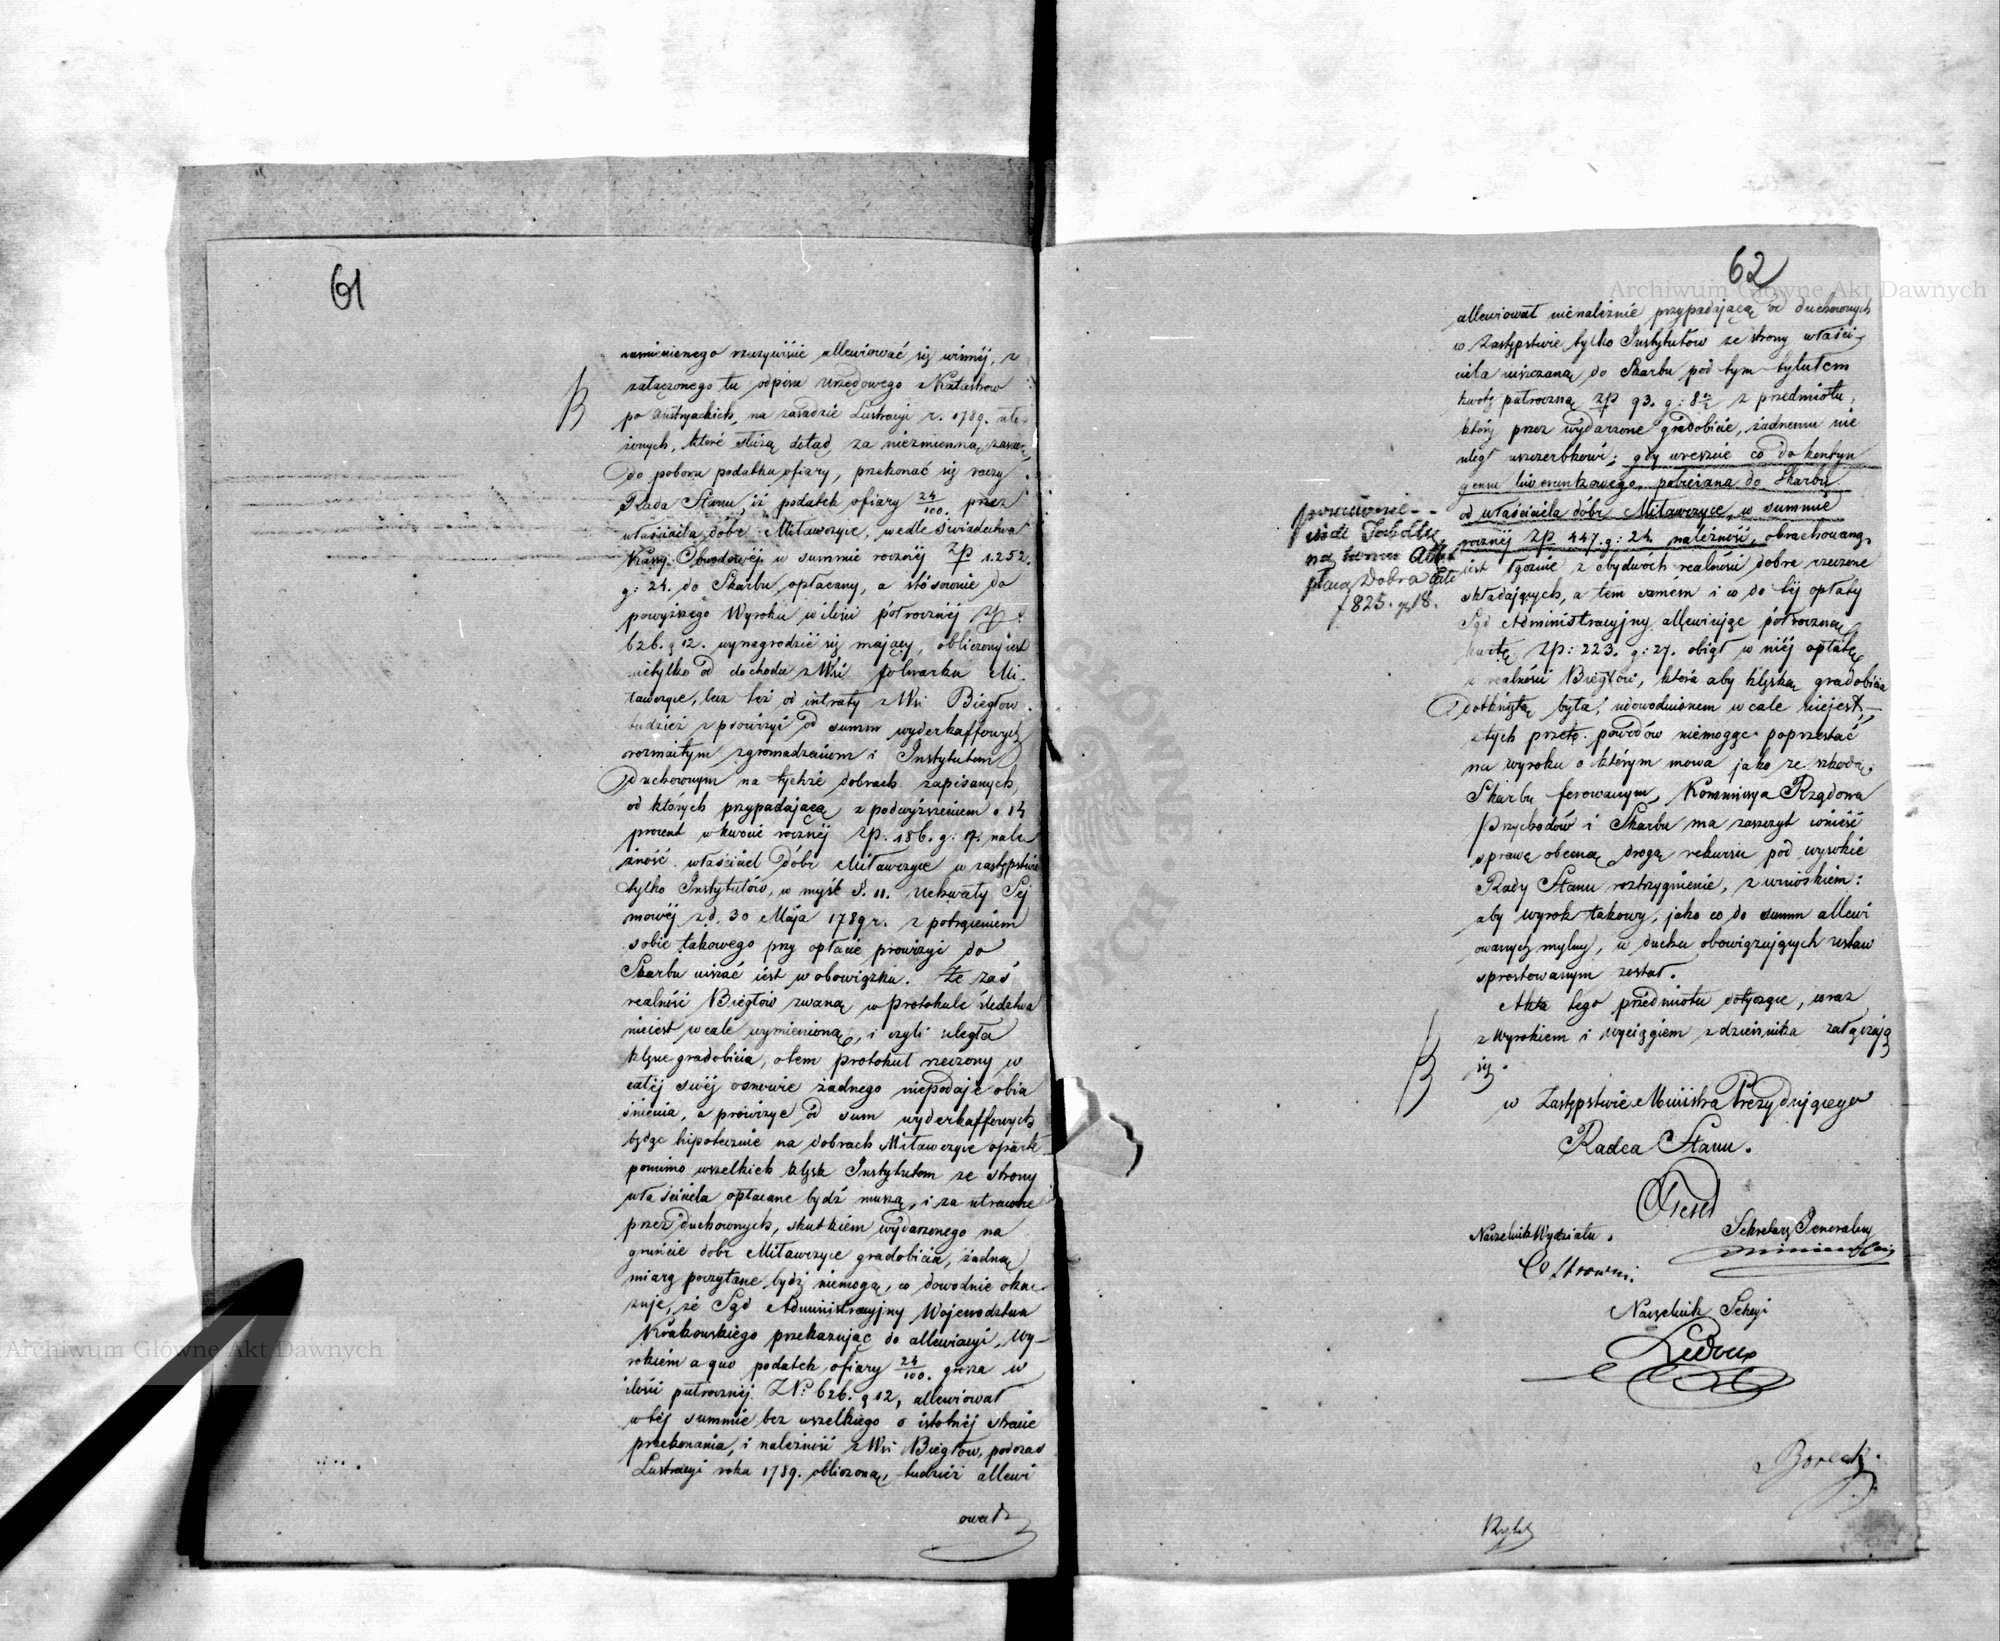 61
rzeczywiście allewiować się winnéj, z
załączonego tu odpisu Urzędowego z Katastrow
po Austryackich, na zasadzie Lustracyi r. 1789. uło-
żonych, które służą dotąd za niezmienną zasadę
do poboru podatku ofiary, przekonać się raczy
Rada Stanu, iż podatek ofiary 24/100. przez
właściciela dóbr Miławczyce, wedle świadectwa
Kassy Obwodowéj w summie rocznéj Zp 1.252.
g: 24. do Skarbu opłacany, a stósownie do
powyższego Wyroku w ilości półrocznéj Zp.
626. g 12. wynagrodzić się mający, obliczony iest
nietylko od dochodu z Wsi folwarku Mi-
ławczyce, lecz też od intraty z Wsi Biegłow
tudzież z prowizyi od summ wyderkaffowych
rozmaitym zgromadzeniom i Instytutom
Duchownym na tychże dobrach zapisanych,
od których przypadającą z podwyższeniem o 14
procent w kwocie rocznéj Zp. 186. g: 17. nale-
żność właściciel Dóbr Miławczyce w zastępstwie
tylko Instytutów, w myśl §. 11. Uchwały Sej
mowéj z d. 30 Maja 1789 r. z potrąceniem
sobie takowego przy opłacie prowizyi do
Skarbu uiszczać iest w obowiązku. Że zaś
realność Biegłów zwaną w Protokule śledztwa
nieiest wcale wymienioną, i czyli uległa
klęsce gradobicia, otem protokuł rzeczony w
całéj swéj osnowie żadnego niepodaje obia
śnienia, a prowizye od sum wyderkaffowych
będąc hipotecznie na dobrach Miławczyce oparte
pomimo wszelkich klęsk Instytutom ze strony
właściciela opłacane bydź muszą, i za utracone
przez Duchownych, skutkiem wydarzonego na
gruncie dobr Miławczyce gradobicia, żadną
miarą poczytane bydź niemogą, co dowodnie oka-
zuje, że Sąd Administracyjny Województwa
Krakowskiego przekazując do allewiacyi, Wy-
rokiem a quo podatek ofiary 24/100. grosza w
ilości półrocznéj ZP: 626. g 12, allewiował
w téj summie bez wszelkiego o istotnéj stracie
przekonania, i należność z Wsi Biegłow, podczas
Lustracyi roku 1789. obliczoną, tudzież allewi
ował
62
allewiował nienależnie przypadającą od duchownych
w Zastępstwie tylko Instytutów ze strony właści-
ciela uiszczaną do Skarbu pod tym tytułem
kwotę półroczną Zp 93. g: 8 1/2 z przedmiotu,
który przez wydarzone gradobicie, żadnemu nie
uległ uszczerbkowi; gdy wreszcie co do kontyn
gensu liwerunkowego, pobierana do Skarbu
od właściciela dóbr Miławczyce, w summie
rocznéj Zp 447. g: 24. należność, obrachowaną
iest łącznie z obydwóch realności dobra rzeczone
składających, a tém samém i co do téj opłaty
Sąd Administracyjny, allewiując półroczną
kwotę Zp: 223. g: 27. objął w niéj opłatę
z realności Biegłów, która aby klęską gradobicia
Dotkniętą była, udowodnionem wcale niejest,—
z tych przeto powodów niemogąc poprzestać
na wyroku o którym mowa jako ze szkodą
Skarbu ferowanym, Kommissya Rządowa
Przychodów i Skarbu ma zaszczyt wnieść
sprawę obecną drogą rekursu pod wysokie
Rady Stanu rozstrzygnienie, z wnioskiem:
aby wyrok takowy, jako co do summ allewi
owanych mylny, w duchu obowiązujących ustaw
sprostowanym został.
Akta tego przedmiotu dotyczące, wraz
z Wyrokiem i wyciągiem z dziennika załączają
się.
w Zastępstwie Ministra Prezydującego
Radca Stanu.
Naczelnik Wydziału.
Sekretarz Jeneralny
Naczelnik Sekcyi
Ledoux
f 825. g 18.